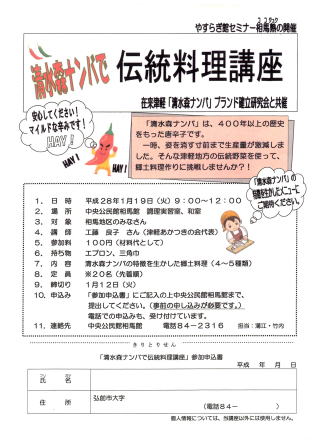 やすらぎ館セミナー相馬熱の開催
清水森ナンバで
伝統料理講座
在来津軽「清水森ナンバ」ブランド確立研究会と共催
安心してください！
マイルドな辛みです！
HAY！
HAY！
HAY！
「清水森ナンバ」は、４００年以上の歴史
をもった唐辛子です。
一時、姿を消す寸前まで生産量が激減しま
した。そんな津軽地方の伝統野菜を使って、
郷土料理作りに挑戦しませんか？！
「清水森ナンバ」の
特徴を生かしたメニューに
ご期待ください。
１．日　時　平成２８年１月１９日（火）９：００～１２：００
２．場　所　中央公民館相馬館　調理実習室、和室
３．対　象　相馬地区のみなさん
４．講　師　工藤　良子　さん（津軽あかつきの会代表）
５．参加料　１００円（材料代として）
６．持ち物　エプロン、三角巾
７．内　容　清水森ナンバの特徴を生かした郷土料理（４～５種類）
８．定　員　※２０名（先着順）
９．締切り　１月１２日（火）
１０．申込み　「参加申込書」にご記入の上中央公民館相馬館まで、
提出してください。（事前の申し込みが必要です。）
電話での申込みも、受け付けています。
１１．連絡先　中央公民館相馬館　電話８４－２３１６　担当：
きりとりせん
「清水森ナンバで伝統料理講座」参加申込書
平成　年　月　日
氏　名
住　所　弘前市大字
（電話８４－　）
個人情報については、当講座以外には使用しません。